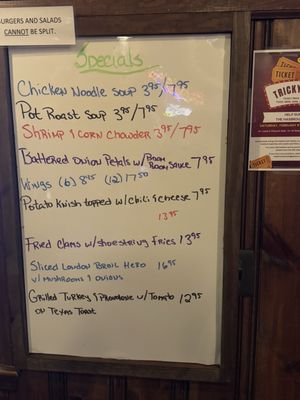 BURGERS AND SALADS
CANNOT BE SPLIT.
Specials
Chicken Noodle Soup 3.95/7.95
Pot Roast Soup 3.95/7.95
Shrimp & Corn Chowder 3.95/7.95
Battered Onion Petals w/ Boom Boom Sauce 7.95
Wings (6) 8.95 (12) 17.50
Potato Knish topped w/ Chili & Cheese 7.95
13.95
Fried Clams w/ shoestring Fries 13.95
Sliced London Broil Hero 16.95
w/ Mushrooms & Onions
Grilled Turkey & Provolone w/ Tomato 12.95
on Texas Toast
TICKET
TRICK
HELP